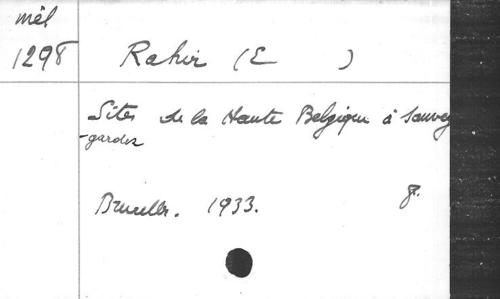 mél
1298
Rahir (E )
Sites de la Haute Belgique à sauve
-garder
Bruxelles. 1933. 8.